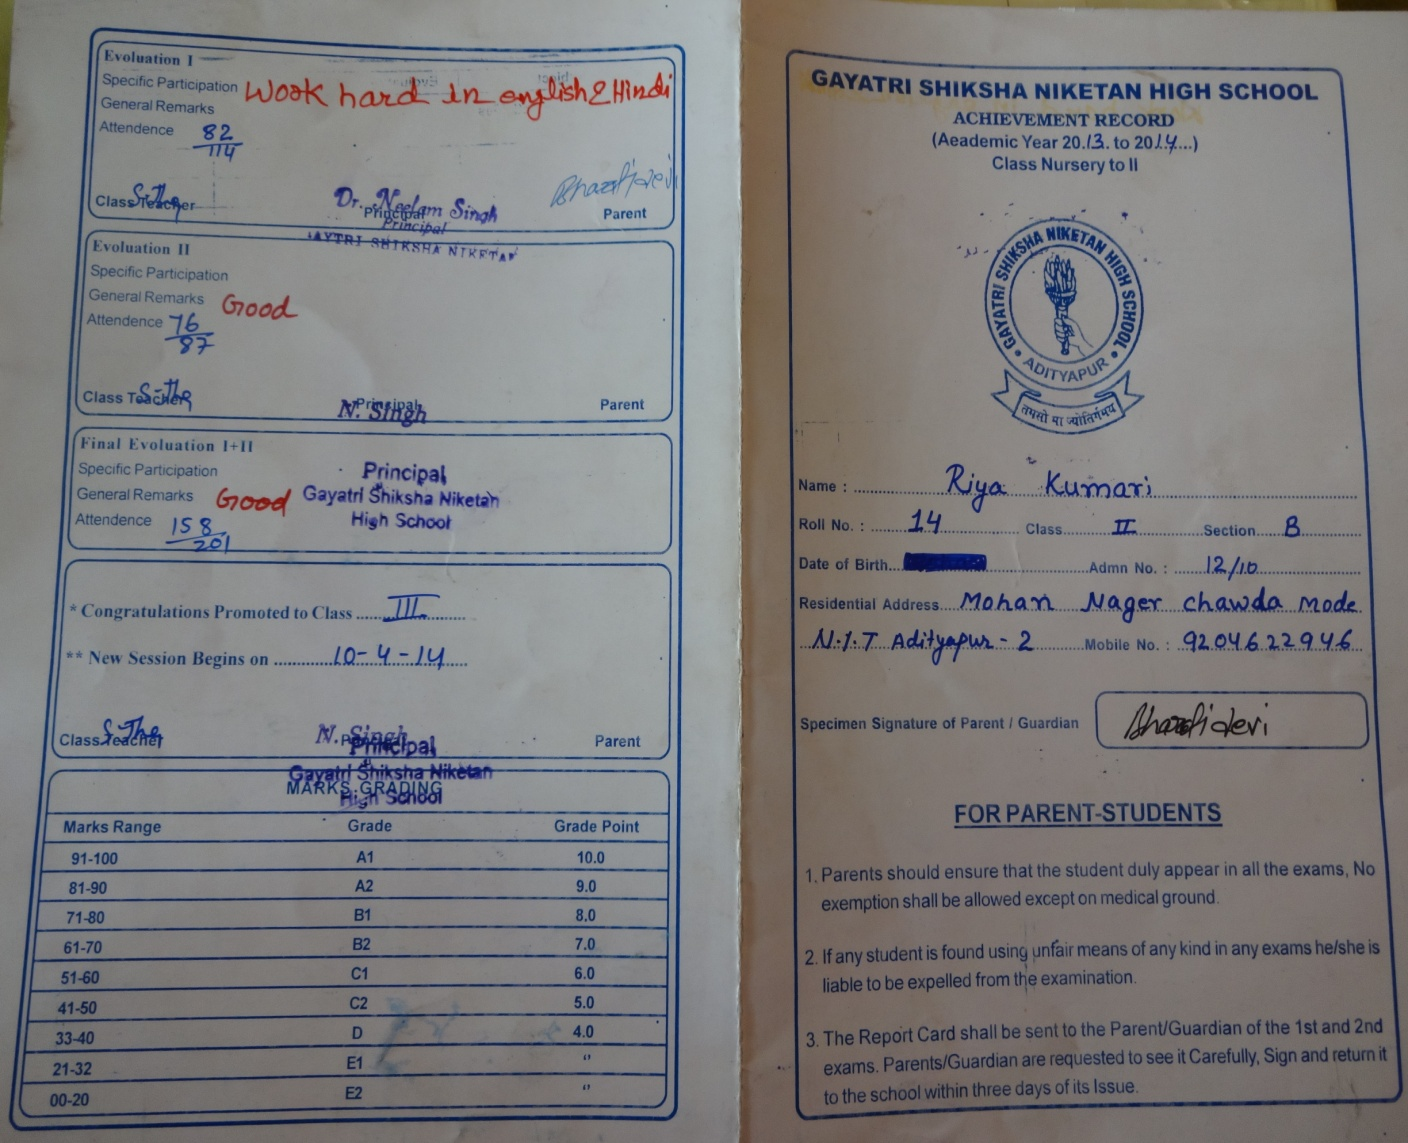 Evaluation I
Specific Participation
Work hard in english & Hindi
General Remarks
Attendence 82/114
Class Teacher Principal Parent
Dr. Neelam Singh
Principal
GAYTRI SHIKSHA NIKETAN
Bharatidevi
Evaluation II
Specific Participation
General Remarks Good
Attendence 76/87
Class Teacher Principal Parent
N. Singh
Final Evaluation I+II
Specific Participation
General Remarks Good
Attendence 158/201
Principal
Gayatri Shiksha Niketan
High School
* Congratulations Promoted to Class ..... III ..........
** New Session Begins on ........... 10-4-14 .....
Class Teacher Principal Parent
N. Singh
Principal
Gayatri Shiksha Niketan
High School
MARKS GRADING
Marks Range Grade Grade Point
91-100 A1 10.0
81-90 A2 9.0
71-80 B1 8.0
61-70 B2 7.0
51-60 C1 6.0
41-50 C2 5.0
33-40 D 4.0
21-32 E1 "
00-20 E2 "
GAYATRI SHIKSHA NIKETAN HIGH SCHOOL
ACHIEVEMENT RECORD
(Aeademic Year 20.13. to 2014...)
Class Nursery to II
GAYATRI SHIKSHA NIKETAN HIGH SCHOOL
ADITYAPUR
तमसो मा ज्योतिर्गमय
Name : Riya Kumari
Roll No. : 14 Class II Section B
Date of Birth Admn No. : 12/10
Residential Address Mohan Nager Chawda Mode
N.I.T Adityapur - 2 Mobile No. : 9204622946
Specimen Signature of Parent / Guardian Bharatidevi
FOR PARENT-STUDENTS
1. Parents should ensure that the student duly appear in all the exams, No
exemption shall be allowed except on medical ground.
2. If any student is found using unfair means of any kind in any exams he/she is
liable to be expelled from the examination.
3. The Report Card shall be sent to the Parent/Guardian of the 1st and 2nd
exams. Parents/Guardian are requested to see it Carefully, Sign and return it
to the school within three days of its Issue.